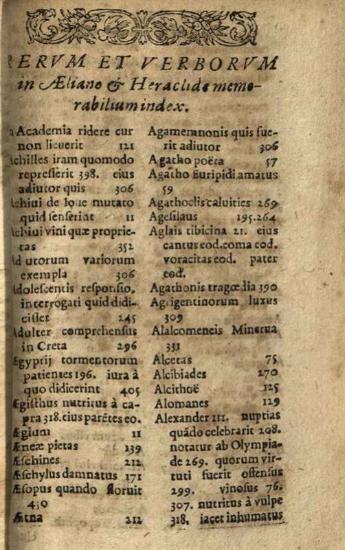 RERVM ET VERBORVM
in Æliano & Heraclide memo-
rabilium index.
Academia ridere cur
non licuerit 121
Achilles iram quomodo
represserit 398. eius
adiutor quis 306
Achiui de loue mutato
quid senserint 11
Achiui vini quæ proprie-
tas 352
Ad utorum variorum
exempla 306
Adolescentis responsio,
interrogati quid didi-
cisset 245
Adulter comprehensus
in Creta 296
Ægyptij tormentorum
patientes 196. iura à
quo didicerint 405
Ægisthus nutritus à ca-
pra 318. eius parētes eo.
Ægium 11
Æneæ pietas 139
Æschines 212
Æschylus damnatus 171
Æsopus quando floruit
430
Ætna 212
Agamemnonis quis fue-
rit adiutor 306
Agatho poëta 57
Agatho Euripidi amatus
59
Agathoclis caluities 269
Agesilaus 195.264
Aglais tibicina 21. eius
cantus eod. coma eod.
voracitas eod. pater
eod.
Agathonis tragœdia 390
Agrigentinorum luxus
309
Alalcomeneis Minerua
331
Alcetas 75
Alcibiades 270
Alcithoë 125
Alomanes 129
Alexander 111. nuptias
quādo celebrarit 208.
notatur ab Olympia-
de 269. quorum vir-
tuti fuerit offensus
299. vinosus 76.
307. nutritus à vulpe
318. iacet inhumatus